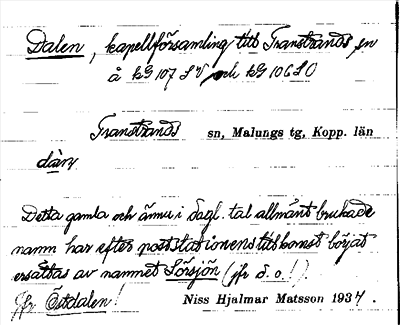 Dalen, kapellförsamling till Transtrands sn
å kG 107 SV och kG 106 SO
Transtrands sn, Malungs tg, Kopp. län
dàṇ
Detta gamla och ännu i dagl. tal allmänt brukade
namn har efter poststationens tillkomst börjat
ersättas av namnet Sörsjön (jfr d. o.!)
jfr Östdalen!
Niss Hjalmar Matsson 1934.